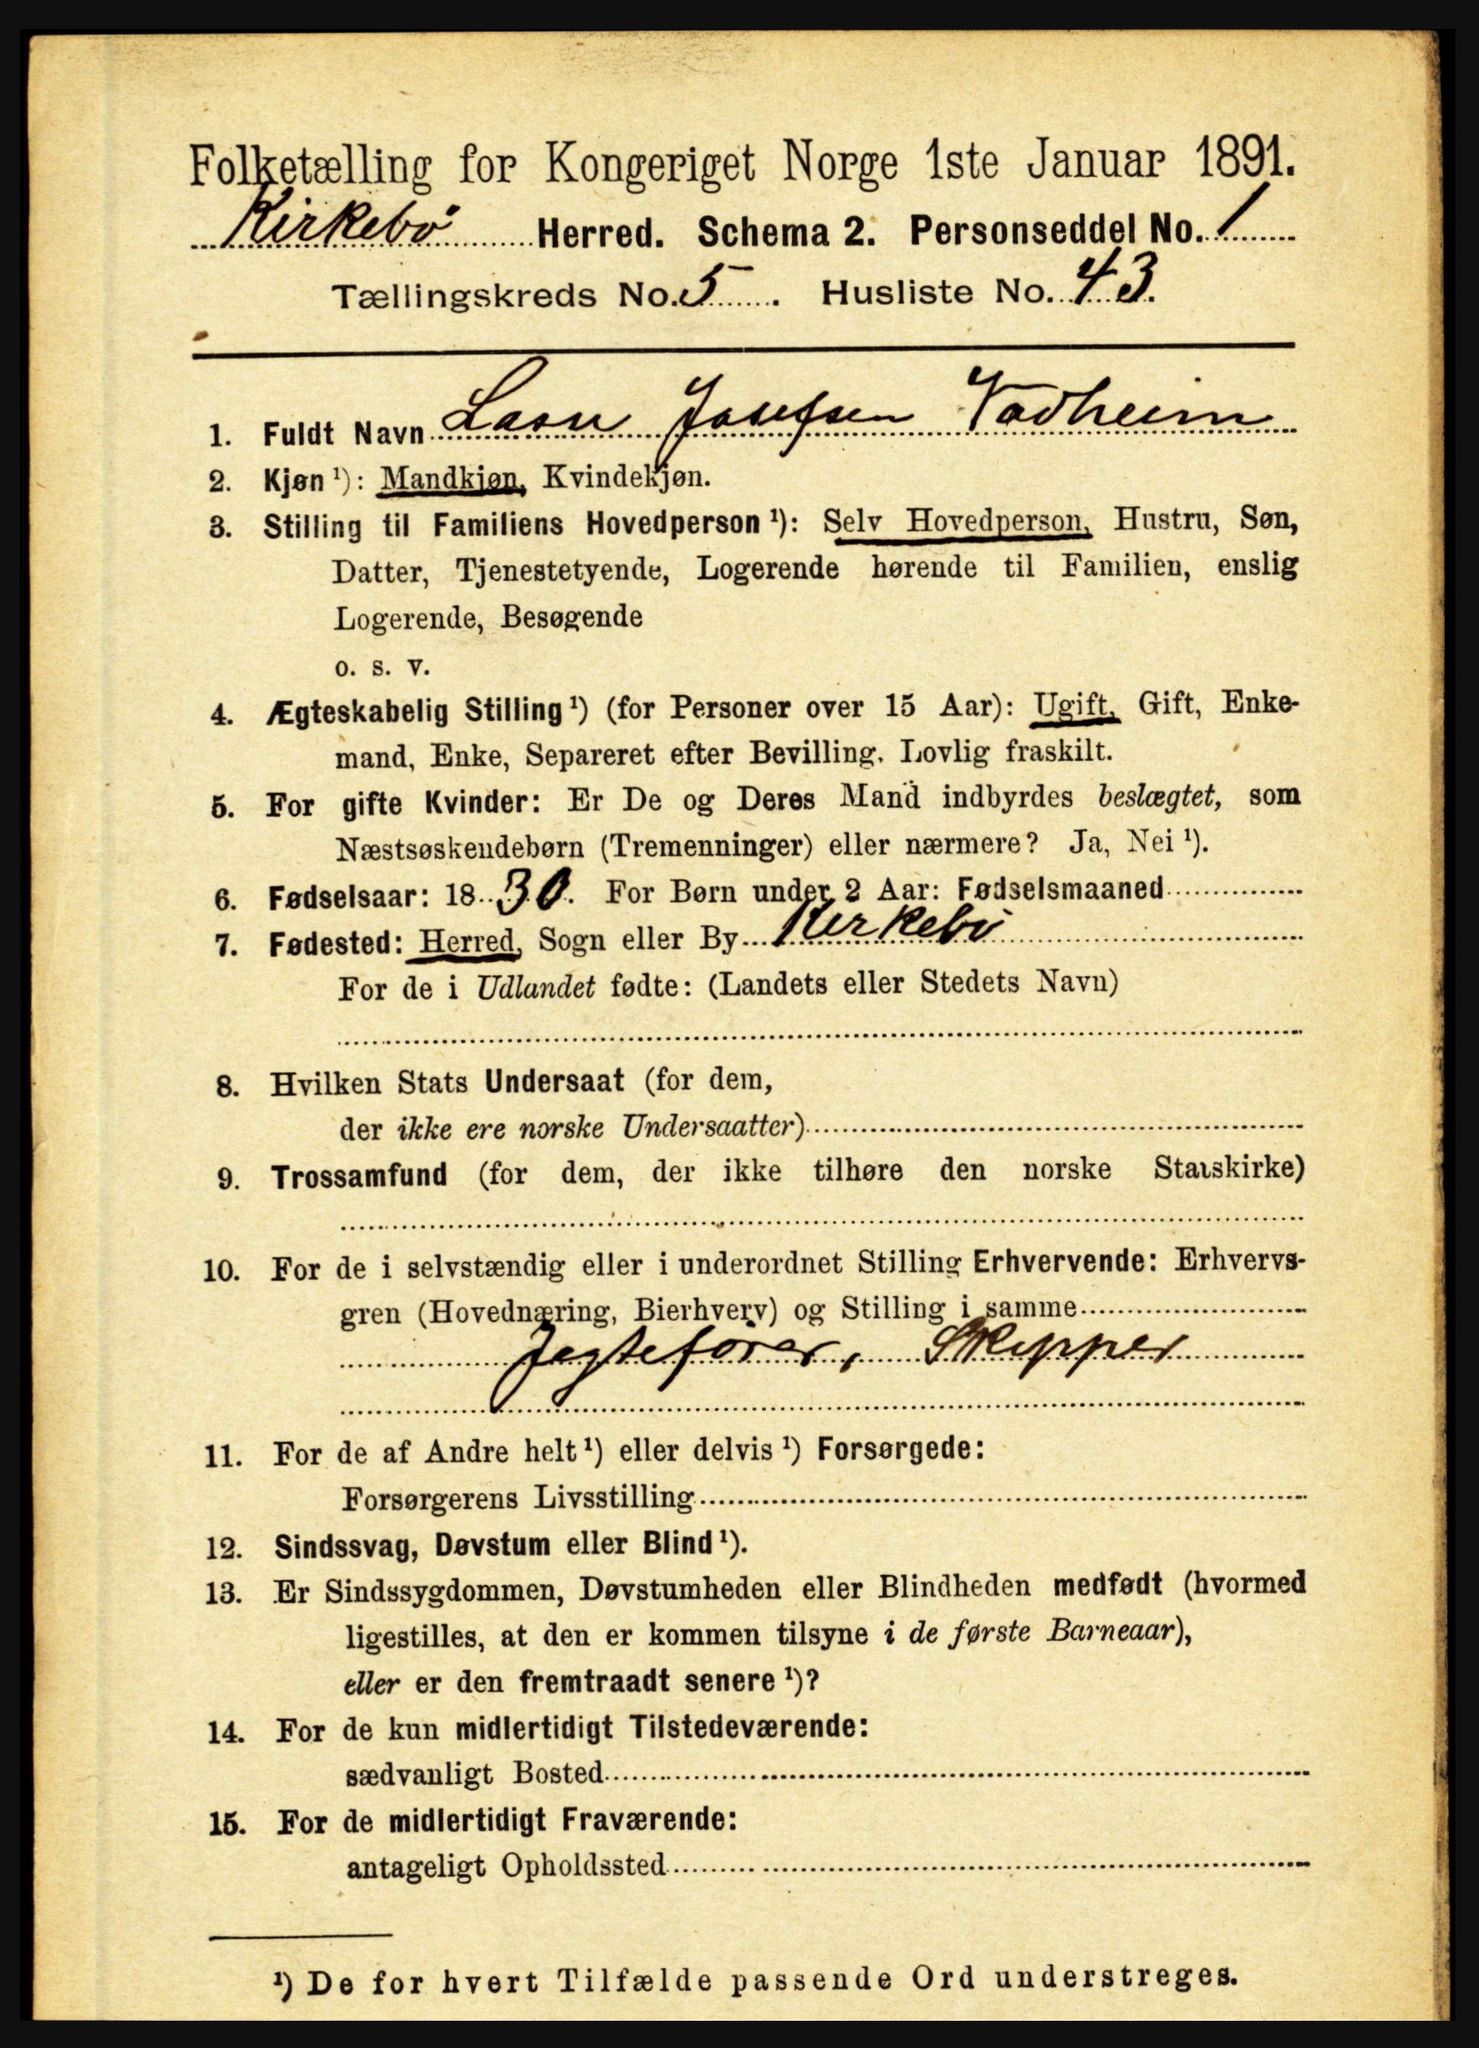 Folketælling for Kongeriget Norge 1ste Januar 1891.
Kirkebö Herred. Schema 2. Personseddel No. 1
Tællingskreds No. 5. Husliste No. 43.
1. Fuldt Navn Lasse Josefsen Vadheim
2. Kjøn ¹): Mandkjøn, Kvindekjøn.
3. Stilling til Familiens Hovedperson ¹): Selv Hovedperson, Hustru, Søn,
Datter, Tjenestetyende, Logerende hørende til Familien, enslig
Logerende, Besøgende
o. s. v.
4. Ægteskabelig Stilling ¹) (for Personer over 15 Aar): Ugift, Gift, Enke-
mand, Enke, Separeret efter Bevilling, Lovlig fraskilt.
5. For gifte Kvinder: Er De og Deres Mand indbyrdes beslægtet, som
Næstsøskendebørn (Tremenninger) eller nærmere? Ja, Nei ¹).
6. Fødselsaar: 1830. For Børn under 2 Aar: Fødselsmaaned
7. Fødested: Herred, Sogn eller By Kirkebö
For de i Udlandet fødte: (Landets eller Stedets Navn)
8. Hvilken Stats Undersaat (for dem,
der ikke ere norske Undersaatter)
9. Trossamfund (for dem, der ikke tilhøre den norske Statskirke)
10. For de i selvstændig eller i underordnet Stilling Erhvervende: Erhvervs-
gren (Hovednæring, Bierhverv) og Stilling i samme
Jægtefører, Skipper
11. For de af Andre helt ¹) eller delvis ¹) Forsørgede:
Forsørgerens Livsstilling
12. Sindssvag, Døvstum eller Blind ¹).
13. Er Sindssygdommen, Døvstumheden eller Blindheden medfødt (hvormed
ligestilles, at den er kommen tilsyne i de første Barneaar),
eller er den fremtraadt senere ¹)?
14. For de kun midlertidigt Tilstedeværende:
sædvanligt Bosted
15. For de midlertidigt Fraværende:
antageligt Opholdssted
¹) De for hvert Tilfælde passende Ord understreges.